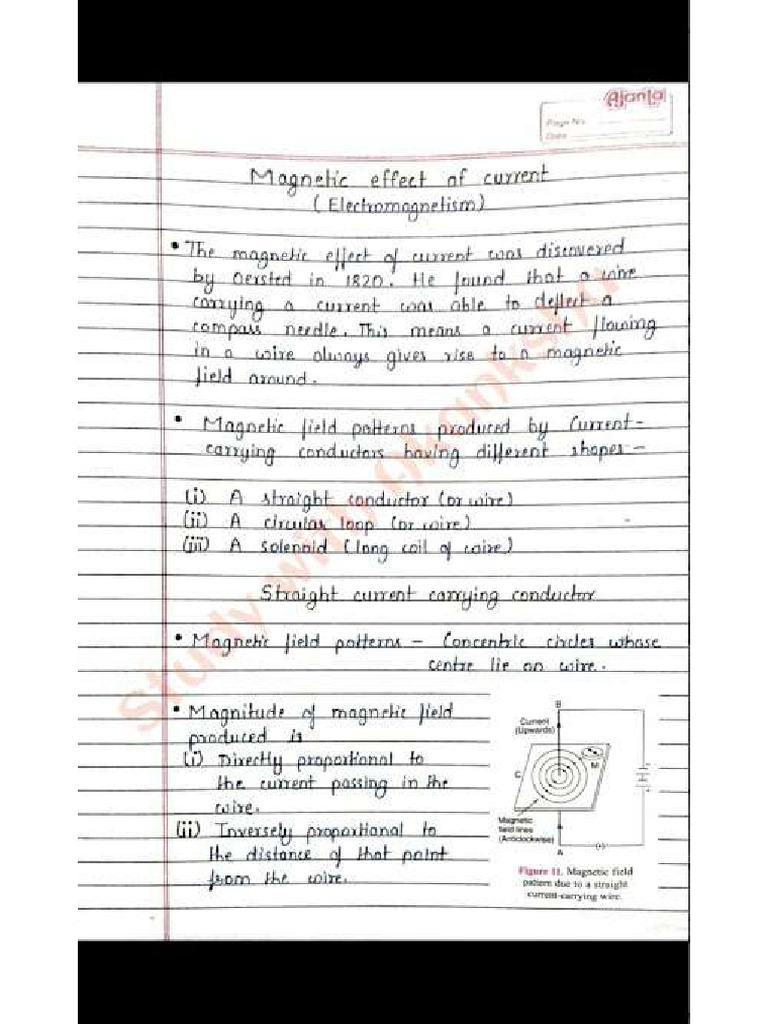 Ajanta
Page No.
Date
Magnetic effect of current
(Electromagnetism)
• The magnetic effect of current was discovered
by Oersted in 1820. He found that a wire
carrying a current was able to deflect a
compass needle. This means a current flowing
in a wire always gives rise to a magnetic
field around.
• Magnetic field patterns produced by Current-
carrying conductors having different shapes -
(i) A straight conductor (or wire)
(ii) A circular loop (or wire)
(iii) A solenoid (long coil of wire)
Straight current carrying conductor
• Magnetic field patterns - Concentric circles whose
centre lie on wire.
• Magnitude of magnetic field
produced is
(i) Directly proportional to
the current passing in the
wire.
(ii) Inversely proportional to
the distance of that point
from the wire.
B
Current
(Upwards)
M
C
Magnetic
field lines
(Anticlockwise)
A
Figure 11. Magnetic field
pattern due to a straight
current-carrying wire.
Study with Akanksha